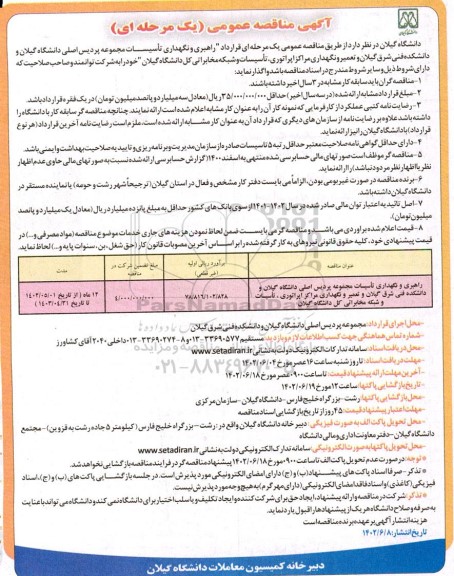 آگهی مناقصه عمومی (یک مرحله ای)
دانشگاه گیلان در نظر دارد از طریق مناقصه عمومی یک مرحله ای قرارداد "راهبری و نگهداری تأسیسات مجموعه پردیس اصلی دانشگاه گیلان و
دانشکده فنی شرق گیلان و تعمیر و نگهداری مراکز اپراتوری، تأسیسات و شبکه مخابراتی کل دانشگاه گیلان" خود را به شرکت توانمند و صاحب صلاحیت که
دارای شروط ذیل و سایر شروط مندرج در اسناد مناقصه باشد واگذار نماید:
۱- مناقصه گران باید سابقه کار مشابه در ۳ سال اخیر داشته باشند.
۲- مبلغ قرارداد مشابه ارائه شده (در سه سال اخیر) حداقل ۳۵/۰۰۰/۰۰۰/۰۰۰ ریال (معادل سه میلیارد و پانصد میلیون تومان) در یک فقره قرارداد باشد.
۳- رضایت نامه کتبی عملکرد از کارفرمایی که نمونه کار آن را به عنوان کار مشابه اعلام شده است ارائه نمایند. چنانچه مناقصه گر سابقه کار با دانشگاه را
داشته باشد علاوه بر رضایت نامه از سازمان های دیگری که قرارداد آن به عنوان کار مشابه ارائه شده است، ملزم است رضایت نامه آخرین قرارداد (هر نوع
قرارداد) با دانشگاه گیلان را نیز ارائه نماید.
۴- دارای حداقل گواهی نامه صلاحیت معتبر حداقل رتبه ۵ تاسیسات صادره از سازمان مدیریت و برنامه ریزی و تایید به صلاحیت بهداشت و ایمنی باشد.
۵- مناقصه گر موظف است صورتهای مالی حسابرسی شده منتهی به اسفند ۱۴۰۰ (گزارش حسابرسی ارائه شده نسبت به صورتهای مالی حاوی عدم اظهار
نظر یا اظهار نظر مردود نباشد) را ارائه نماید.
۶- برنده مناقصه در صورت غیر بومی بودن، الزاماً می بایست دفتر کار مشخص و فعال در استان گیلان (ترجیحاً شهر رشت و حومه) یا نماینده مستقر در
دانشگاه گیلان داشته باشد.
۷- اصل تائیدیه اعتبار توان مالی صادر شده در سال ۱۴۰۲-۱۴۰۱ از سوی بانک های کشور حداقل به مبلغ پانزده میلیارد ریال (معادل یک میلیارد و پانصد
میلیون تومان).
۸- قیمت اعلام شده برآوردی می باشد و مناقصه گر می بایست ضمن لحاظ نمودن هزینه های جاری خدمات موضوع مناقصه (مواد مصرفی و ...) در
قیمت پیشنهادی خود، کلیه حقوق قانونی نیروهای به کار گرفته شده را بر اساس آخرین مصوبات قانون کار (حق شغل، بن، سنوات پایه و ...) لحاظ نماید.
عنوان مناقصه
برآورد ریالی اولیه (غیر قطعی)
مبلغ تضمین شرکت در مناقصه
مدت
راهبری و نگهداری تأسیسات مجموعه پردیس اصلی دانشگاه گیلان و
دانشکده فنی شرق گیلان و تعمیر و نگهداری مراکز اپراتوری، تأسیسات
و شبکه مخابراتی کل دانشگاه گیلان
۷۸/۸۱۶/۱۰۲/۸۲۸
۴/۰۰۰/۰۰۰/۰۰۰
۱۲ ماه (از تاریخ ۱۴۰۲/۰۵/۰۱
تا تاریخ ۱۴۰۳/۰۴/۳۱)
-محل اجرای قرارداد: مجموعه پردیس اصلی دانشگاه گیلان و دانشکده فنی شرق گیلان
-شماره تماس هماهنگی جهت کسب اطلاعات لازم و بازدید: مستقیم ۳۳۶۹۰۵۷۷-۰۱۳ و ۸-۳۳۶۹۰۲۷۴-۰۱۳ داخلی ۲۰۴۰ آقای کشاورز
-محل دریافت اسناد: سامانه تدارکات الکترونیک دولت به نشانی www.setadiran.ir
-مهلت دریافت اسناد: تا روز شنبه ساعت ۱۶ عصر مورخ ۱۴۰۲/۰۶/۰۴
-آخرین مهلت ارائه پیشنهاد قیمت: تا ساعت ۹:۰۰ عصر مورخ ۱۴۰۲/۰۶/۱۸
-تاریخ بازگشایی پاکتها: ساعت ۱۲ مورخ ۱۴۰۲/۰۶/۱۹
-محل بازگشایی پاکتها: رشت- بزرگراه خلیج فارس- دانشگاه گیلان- سازمان مرکزی
-مهلت اعتبار پیشنهاد قیمت: ۴۵ روز از تاریخ بازگشایی اسناد مناقصه
-محل تحویل پاکت الف به صورت فیزیکی: دبیرخانه دانشگاه گیلان واقع در: رشت- بزرگراه خلیج فارس (کیلومتر ۵ جاده رشت به قزوین)- مجتمع
دانشگاه گیلان- دفتر معاونت اداری و مالی دانشگاه
-محل تحویل پاکتها به صورت الکترونیکی: سامانه تدارک الکترونیکی دولت به نشانی www.setadiran.ir
*توجه: در صورت عدم تحویل پاکت الف تا ساعت ۹:۰۰ مورخ ۱۴۰۲/۰۶/۱۸ پیشنهاد مناقصه گر در فرایند مناقصه بازگشایی نخواهد شد.
*تذکر- صرفاً اسناد پاکت های پیشنهاد (ب) و (ج) دارای امضای الکترونیکی مورد پذیرش است. در جلسه بازگشایی پاکت های (ب) و (ج)، اسناد
فیزیکی (کاغذی) و اسناد فاقد امضای الکترونیکی (دارای مهر گرم) به هیچ وجه مورد پذیرش نیست.
*تذکر: شرکت در مناقصه و ارائه پیشنهاد، ایجاد حق برای شرکت کننده و ایجاد تکلیف و یا سلب اختیار برای دانشگاه نمی کند و دانشگاه می تواند با عنایت
به صرفه و صلاح دانشگاه هر یک از پیشنهادها را قبول یا رد نماید.
هزینه انتشار آگهی بر عهده برنده مناقصه است
تاریخ انتشار: ۱۴۰۲/۶/۸
دبیرخانه کمیسیون معاملات دانشگاه گیلان